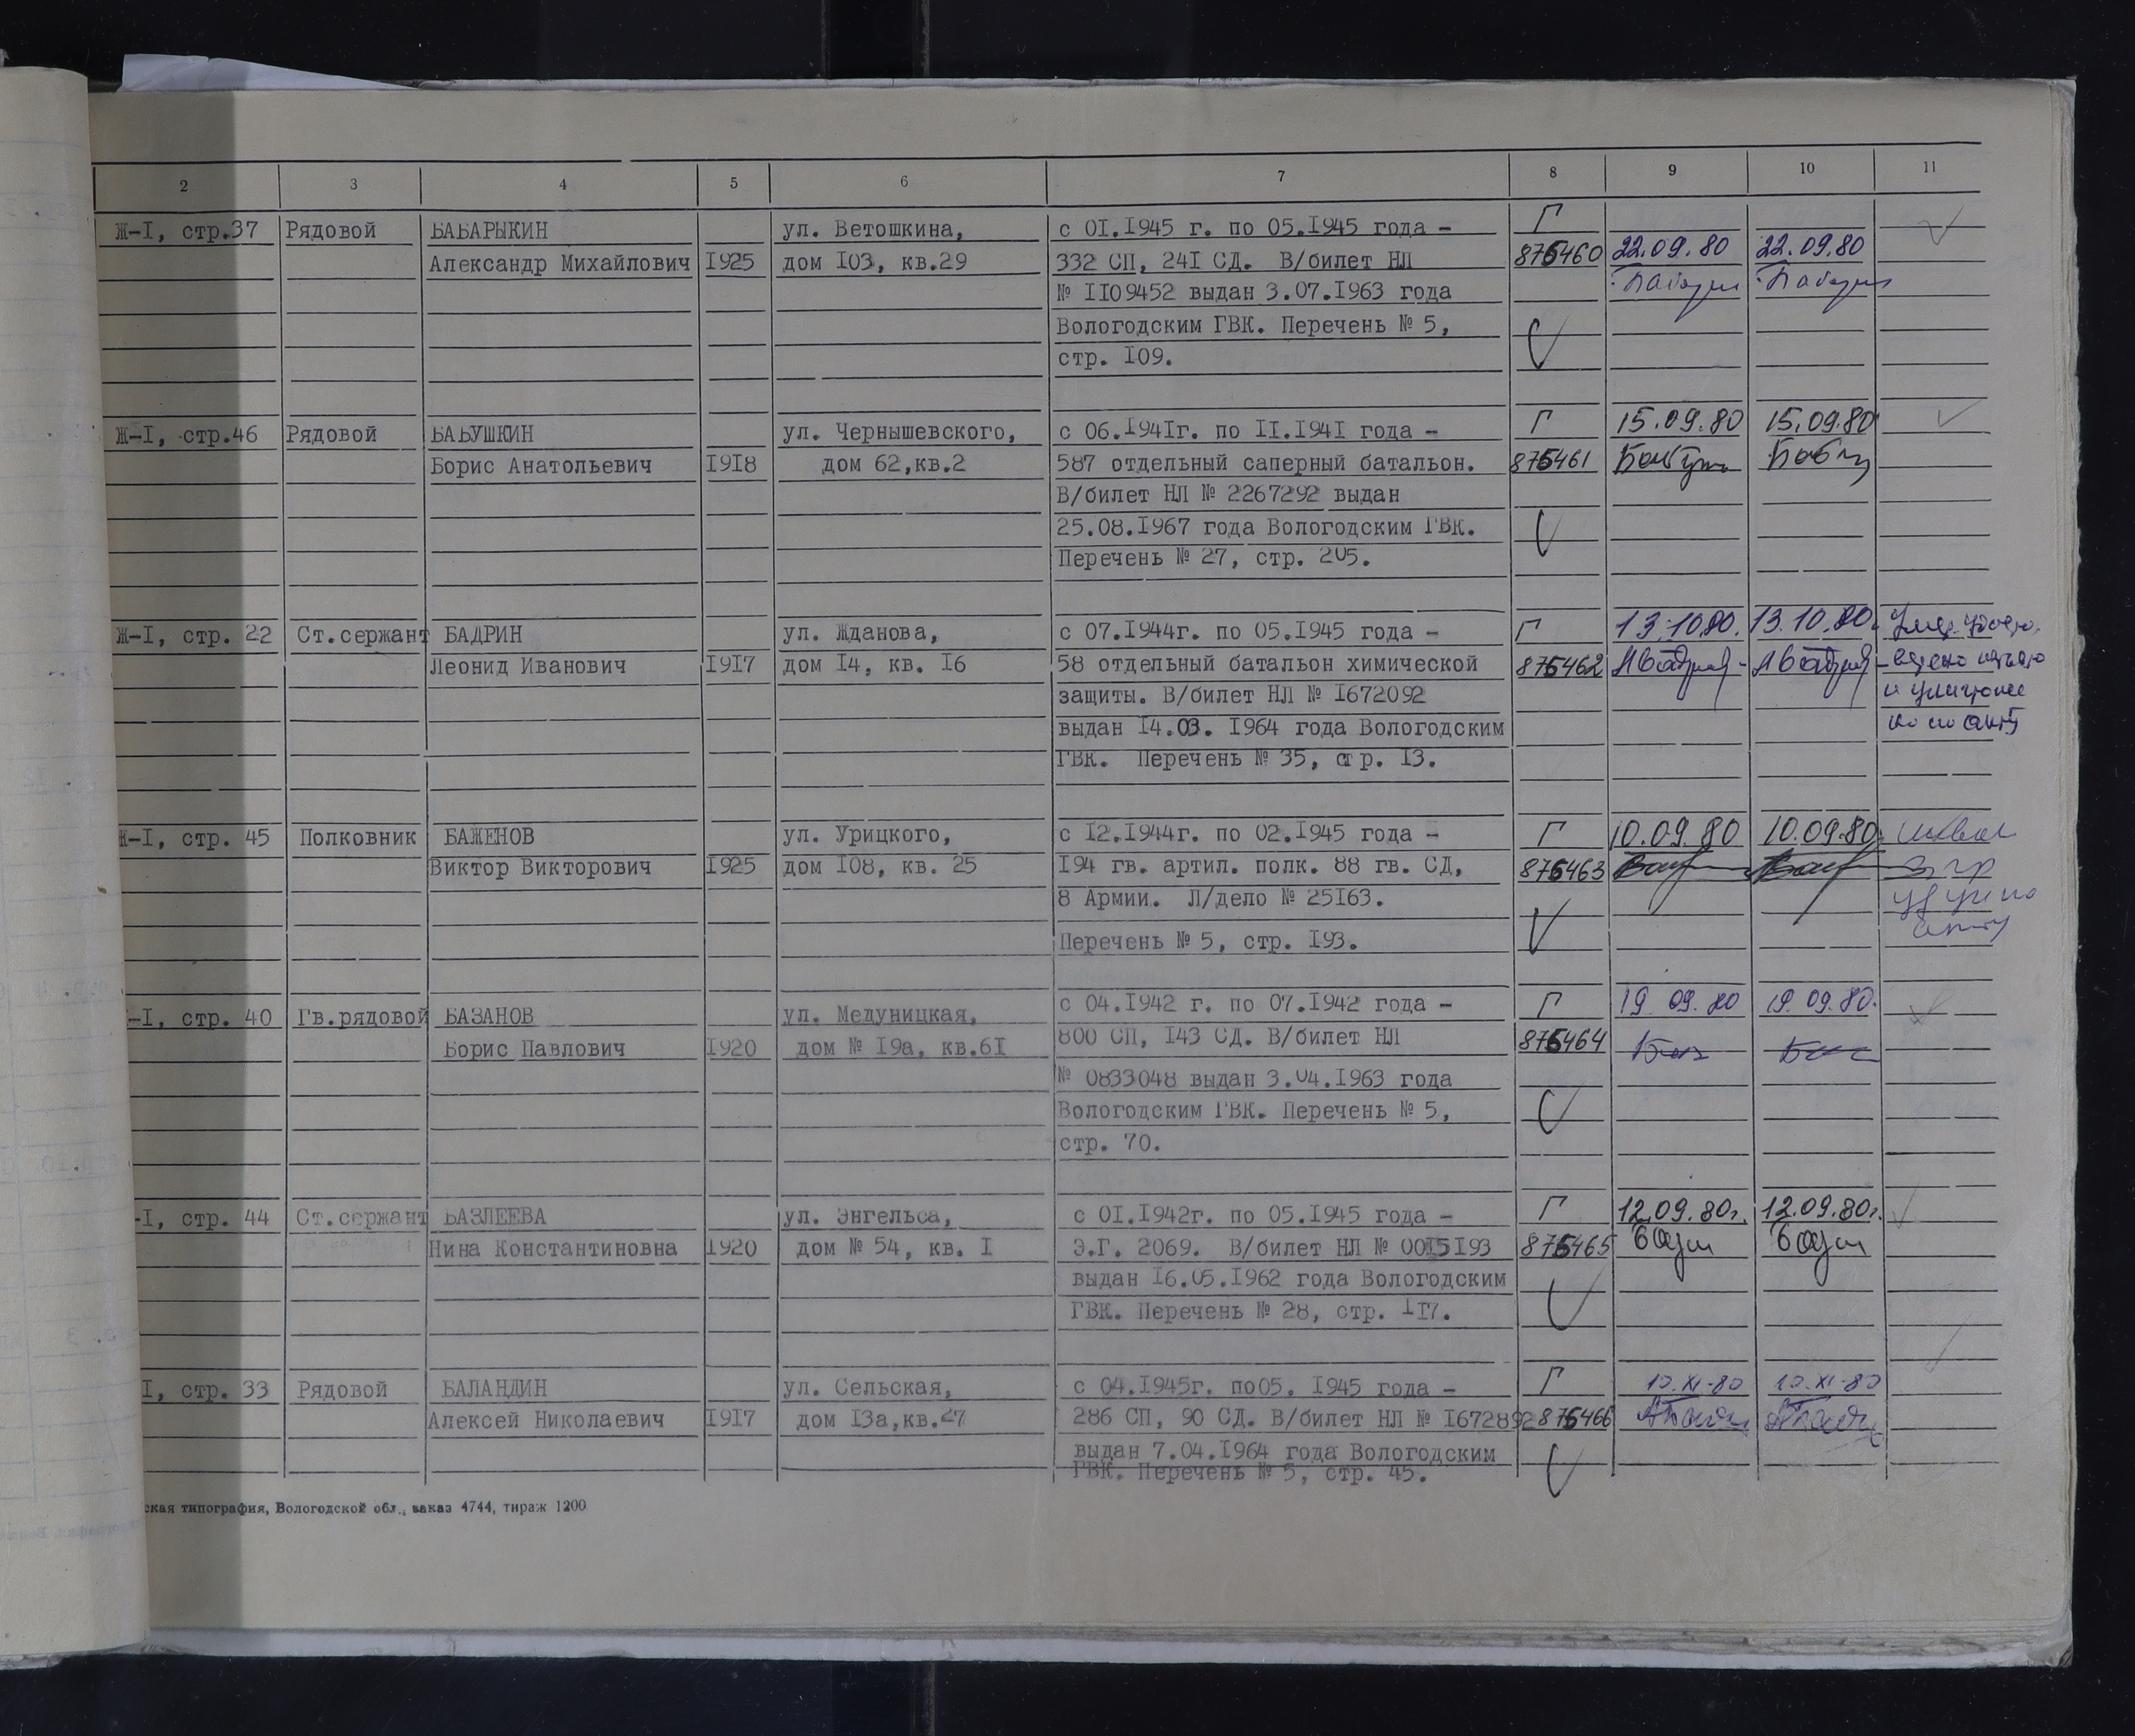 2 3 4 5 6 7 8 9 10 11
Ж-I, стр.37 Рядовой БАБАРЫКИН ул. Ветошкина, с 0I.I945 г. по 05.I945 года - Г
Александр Михайлович I925 дом I03, кв.29 332 СП, 24I СД. В/билет НЛ 875460 22.09.80 22.09.80
№ II09452 выдан 3.07.I963 года
Вологодским ГВК. Перечень № 5,
стр. I09.
Ж-I, стр.46 Рядовой БАБУШКИН ул. Чернышевского, с 06.I94Iг. по II.I94I года - Г 15.09.80 15.09.80
Борис Анатольевич I9I8 дом 62,кв.2 587 отдельный саперный батальон. 875461
В/билет НЛ № 2267292 выдан
25.08.I967 года Вологодским ГВК.
Перечень № 27, стр. 205.
Ж-I, стр. 22 Ст.сержант БАДРИН ул. Жданова, с 07.I944г. по 05.I945 года - Г 13.10.80. 13.10.80.
Леонид Иванович I9I7 дом I4, кв. I6 58 отдельный батальон химической 875462
защиты. В/билет НЛ № I672092
выдан I4.03. I964 года Вологодским
ГВК. Перечень № 35, стр. I3.
Ж-I, стр. 45 Полковник БАЖЕНОВ ул. Урицкого, с I2.I944г. по 02.I945 года - Г 10.09.80 10.09.80.
Виктор Викторович I925 дом I08, кв. 25 I94 гв. артил. полк. 88 гв. СД, 875463
8 Армии. Л/дело № 25I63.
Перечень № 5, стр. I93.
-I, стр. 40 Гв.рядовой БАЗАНОВ ул. Медуницкая, с 04.I942 г. по 07.I942 года - Г 19.09.80 19.09.80.
Борис Павлович I920 дом № I9а, кв.6I 800 СП, I43 СД. В/билет НЛ 875464
№ 0833048 выдан 3.04.I963 года
Вологодским ГВК. Перечень № 5,
стр. 70.
-I, стр. 44 Ст.сержант БАЗЛЕЕВА ул. Энгельса, с 0I.I942г. по 05.I945 года - Г 12.09.80г. 12.09.80г.
Нина Константиновна I920 дом № 54, кв. I Э.Г. 2069. В/билет НЛ № 00I5I93 875465
выдан I6.05.I962 года Вологодским
ГВК. Перечень № 28, стр. II7.
I, стр. 33 Рядовой БАЛАНДИН ул. Сельская, с 04.I945г. по05. I945 года - Г 10.XI-80 10.XI-80
Алексей Николаевич I9I7 дом I3а,кв.27 286 СП, 90 СД. В/билет НЛ № I672892 875466
выдан 7.04.I964 года Вологодским
ГВК. Перечень № 5, стр. 45.
ская типография, Вологодской обл., заказ 4744, тираж 1200